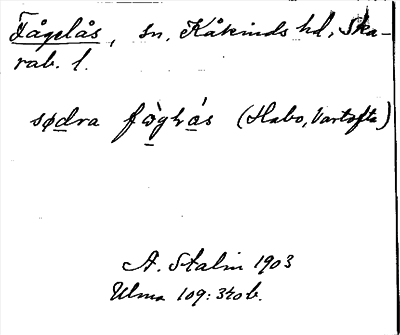 Fågelås, sn. Kåkinds hd, Ska-
rab. l.
södra fò̱gḷás (Habo, Vartofta)
A. Stalin 1903
Ulma 109:340 b.